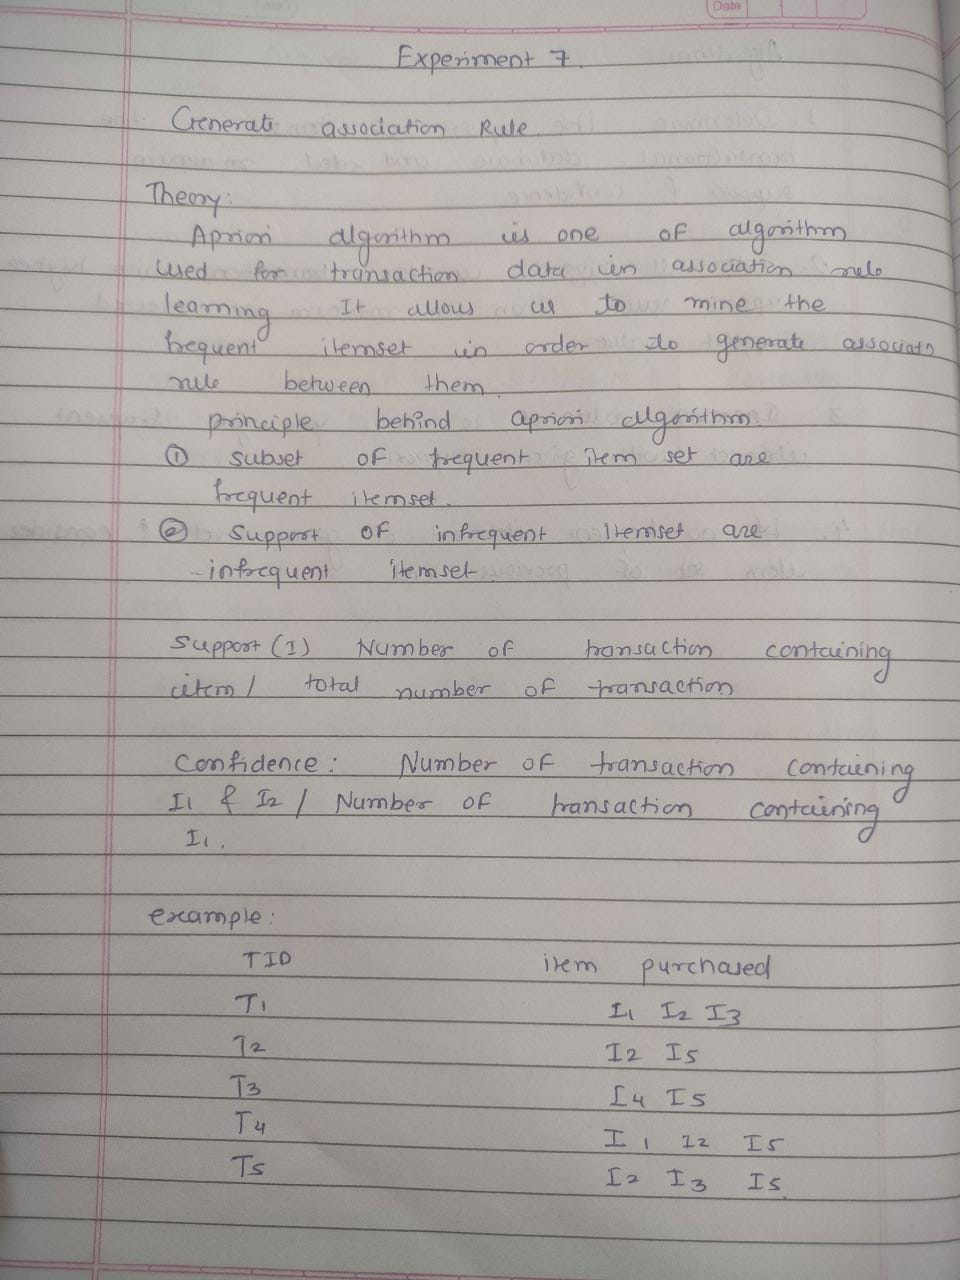 Date
Experiment 7.
Generate association Rule
Theory:
Apriori algorithm is one of algorithm
used for transaction data in association rule
learning It allows us to mine the
frequent itemset in order to generate associatn
rule between them.
principle behind apriori algorithm.
① subset of frequent item set are
frequent itemset.
② Support of infrequent itemset are
-infrequent itemset
Support (I) Number of transaction containing
item / total number of transaction
Confidence: Number of transaction containing
I1 & I2 / Number of transaction containing
I1.
example:
TID item purchased
T1 I1 I2 I3
T2 I2 I5
T3 I4 I5
T4 I1 I2 I5
T5 I2 I3 I5